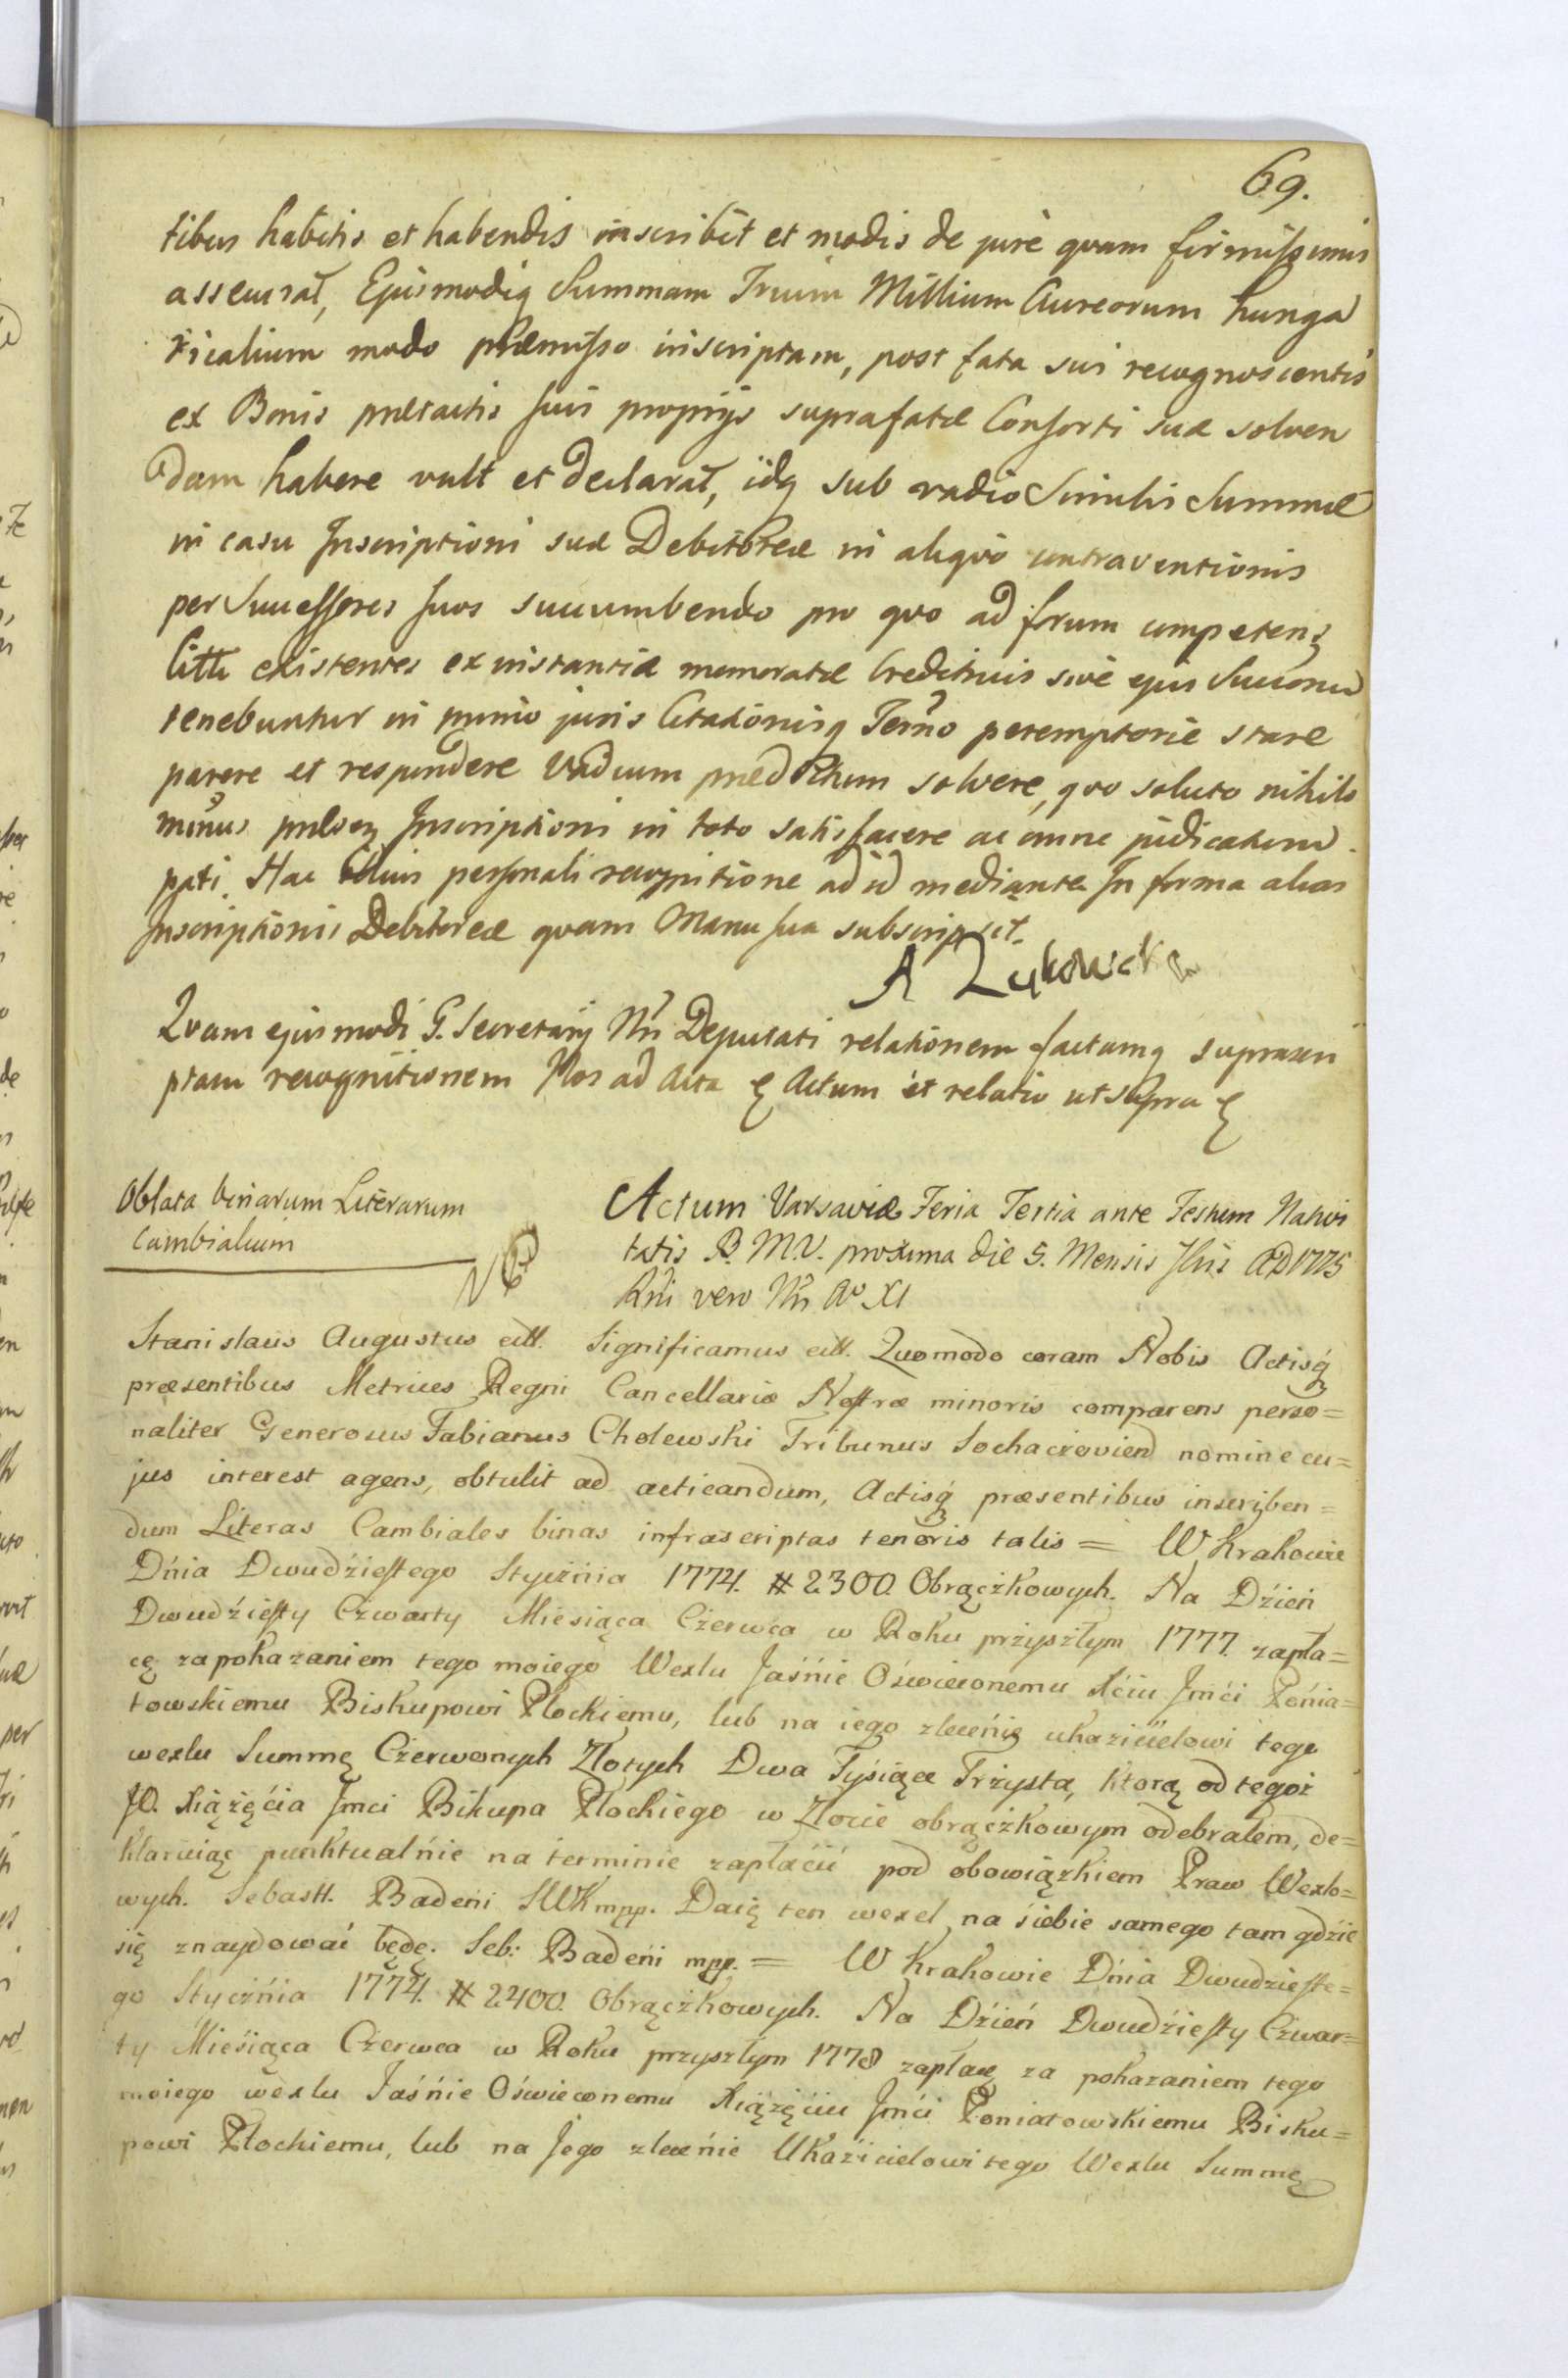 69.
tibus habitis et habendis inscribit et modis de jure quam firmissimis
assecurat, Ejusmodiq Summam Trium Millium Aureorum hunga
ricalium modo præmisso inscriptam, post fata sui recognoscentis
ex Bonis prætactis suis proprijs suprafatæ Consorti suæ solven
dam habere vult et declarat, idq sub vadio Similis Summæ
in casu Inscriptioni suæ Debitoreæ in aliquo contraventionis
per Successores suos succumbendo pro quo ad forum competens
Citti existentes ex instantia memoratæ Creditricis sive ejus Succorum
tenebuntur in primo juris Citaõonisq Termo peremptorie stare
parere et respondere Vadium prædictum solvere, quo soluto nihilo
minus Inscriptioni in toto satisfacere ac omne judicatum
pati. Hac personali recognitione ad id mediante In forma alias
Inscriptionis Debitoreæ quam Manu sua subscripsit.
A
Quam ejusmodi G. Secretarij Nri Deputati relationem factamq suprascri
ptam recognitionem Nos ad Acta Actum et relatio ut supra
Oblata binarum Literarum
Cambialium
Actum Varsaviæ Feria Tertia ante Festum Nativi
tatis B. M.V. proxima die 5. Mensis 7bris AD 1775
Rni vero Nri Ao XI
Stanislaus Augustus ettt. Significamus ettt. Quomodo coram Nobis Actisq
præsentibus Metrices Regni Cancellariæ Nostræ minoris comparens perso=
naliter Generosus Fabianus Cholewski Tribunus Sochaczovien nomine cu=
jus interest agens, obtulit ad acticandum, Actisq præsentibus inscriben=
dum Literas Cambiales binas infrascriptas tenoris talis = W Krakowie
Dńia Dwudźiestego Styczńia 1774. # 2300. Obrączkowych. Na Dźień
Dwudźiesty Czwarty Miesiąca Czerwca w Roku przyszłym 1777. zapła=
cę za pokazaniem tego moiego Wexlu Jaśńie Oświeconemu Xćiu Jmći Pońia=
towskiemu Biskupowi Płockiemu, lub na iego zleceńię ukazićielowi tego
wexlu Summę Czerwonych Złotych Dwa Tyśiące Trzysta, ktorą od tegoż
JO. Xiążęćia Jmci Bikupa Płockiego w Złocie obrączkowym odebrałem, de=
klaruiąc punktualńie na terminie zapłaćić pod obowiązkiem Praw Wexlo=
wych. Sebastt. Badeni SWK mpp. Daię ten wexel na śiebie samego tam gdźie
się znaydować będę. Seb: Badeńi mpp. = W Krakowie Dńia Dwudzieste=
go Styczńia 1774. # 2400. Obrączkowych. Na Dźień Dwudźiesty Czwar=
ty Mieśiąca Czerwca w Roku przyszłym 1778 zapłacę za pokazaniem tego
moiego wexlu Jaśńie Oświeconemu Xiążęćiu Jmći Poniatowskiemu Bisku=
powi Płockiemu, lub na Jego zleceńie Ukaźicielowi tego Wexlu Summę